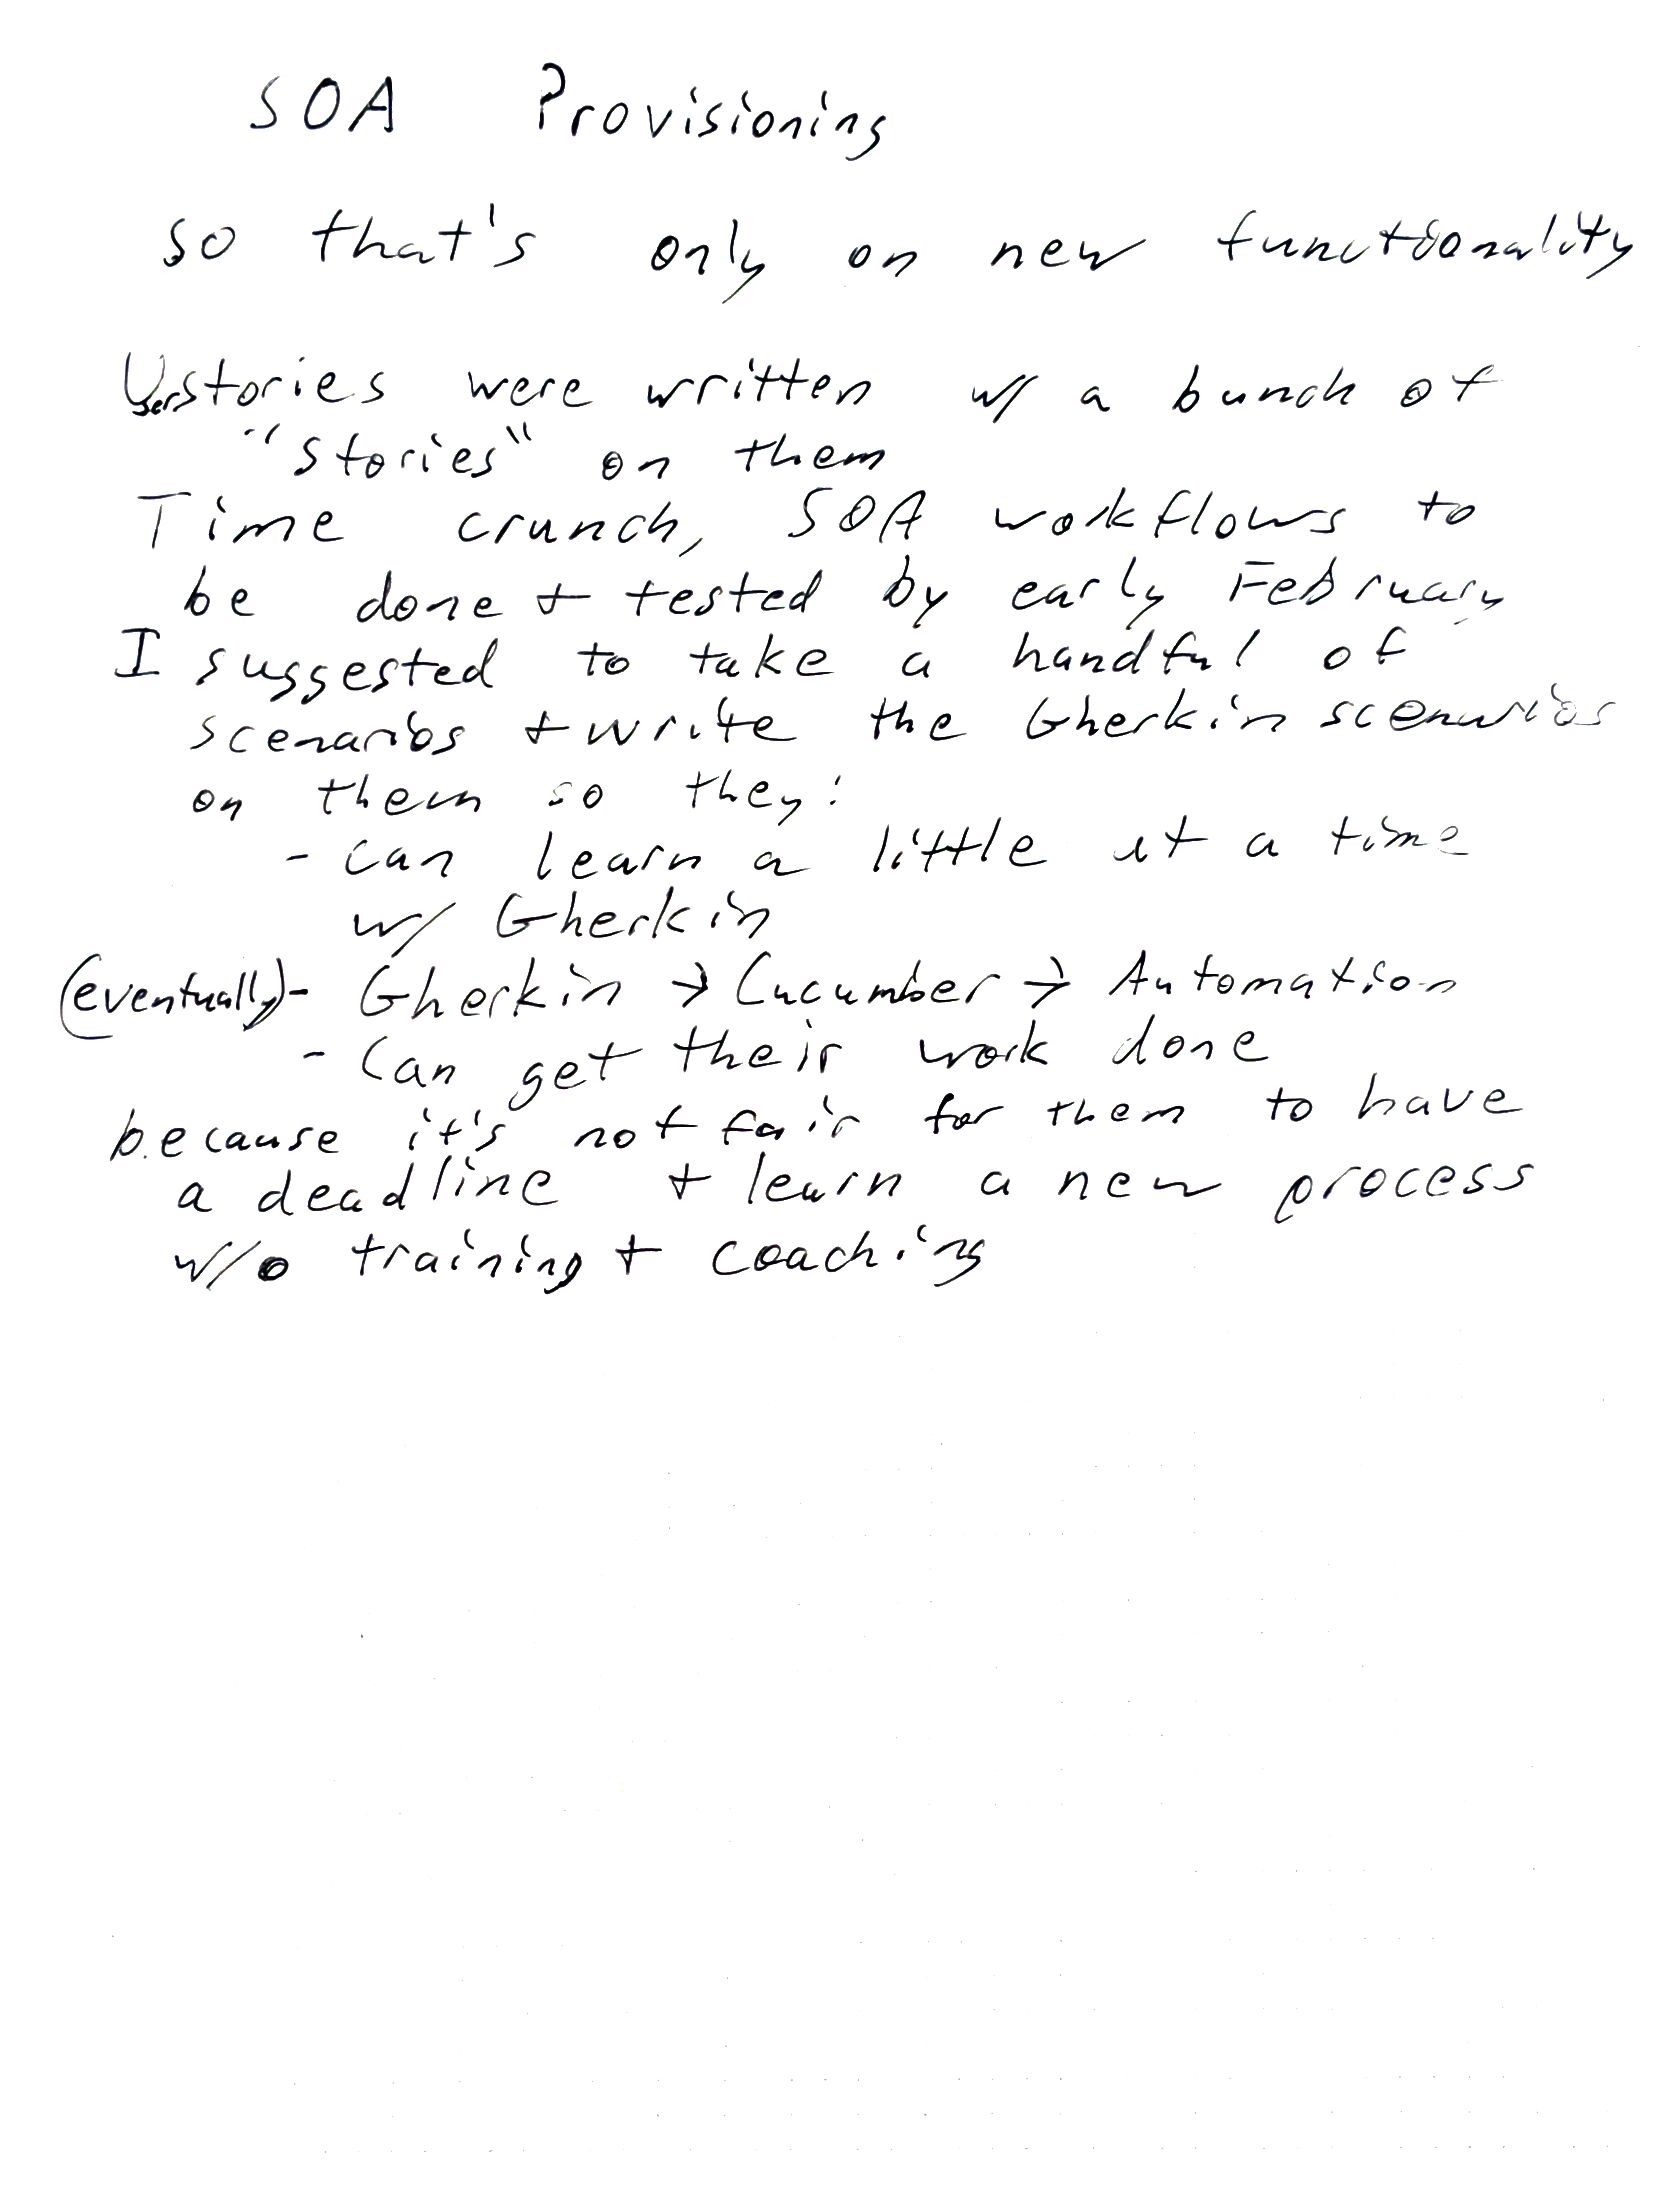 SOA Provisioning
so that's only on new functionality
User stories were written w/ a bunch of
"stories" on them
Time crunch, SOA workflows to
be done + tested by early February
I suggested to take a handful of
scenarios + write the Gherkin scenarios
on them so they:
- can learn a little at a time
w/ Gherkin
(eventually) - Gherkin → Cucumber → Automation
- Can get their work done
because it's not fair for them to have
a deadline + learn a new process
w/o training + coaching